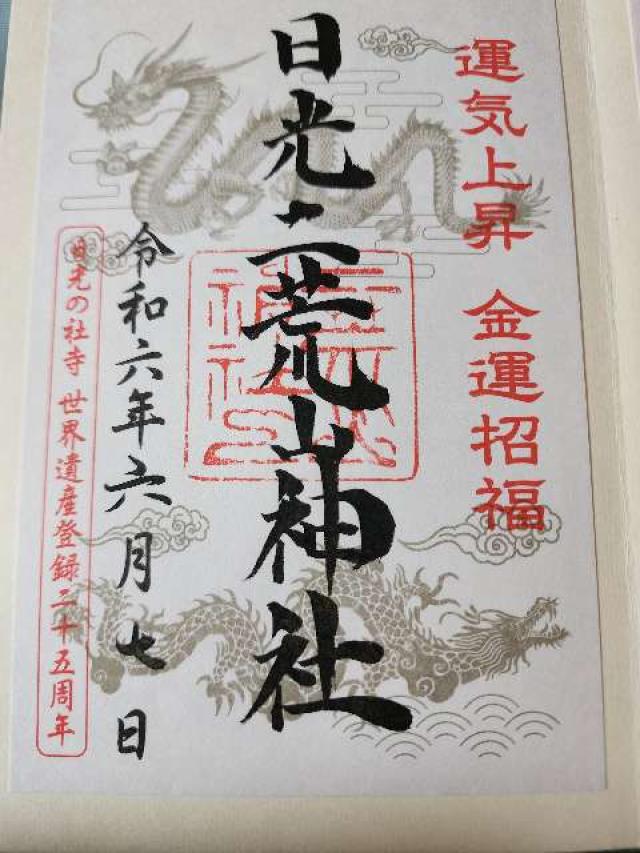 運気上昇 金運招福
日光二荒山神社
令和六年六月七日
日光の社寺 世界遺産登録二十五周年